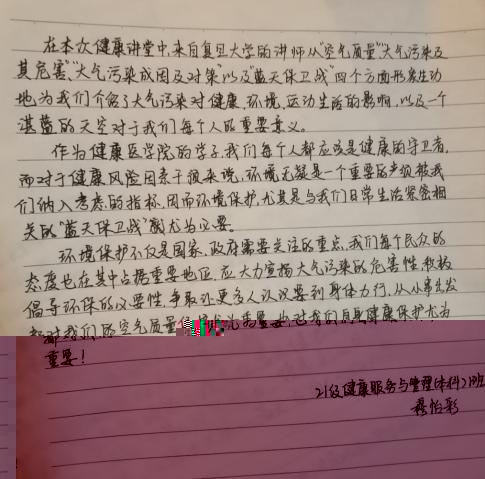 在本次健康讲堂中,来自复旦大学的讲师从“空气质量”“大气污染及
其危害”“大气污染成因及对策”以及“蓝天保卫战”四个方面形象生动
地为我们介绍了大气污染对健康、环境、运动生活的影响,以及一个
湛蓝的天空对于我们每个人的重要意义。
作为健康医学院的学子,我们每个人都应该是健康的守卫者,
而对于健康风险因素干预来说,环境无疑是一个重要的应被我
们纳入考虑的指标,因而环境保护,尤其是与我们日常生活紧密相
关的“蓝天保卫战”就尤为必要。
环境保护不仅是国家、政府需要关注的重点,我们每个民众的
态度也在其中占据重要地位,应大力宣扬大气污染的危害性,积极
倡导环保的必要性,争取让更多人认识要到身体力行,从小事出发
都对我们的空气质量
重要!
21级健康服务与管理(本科)2班